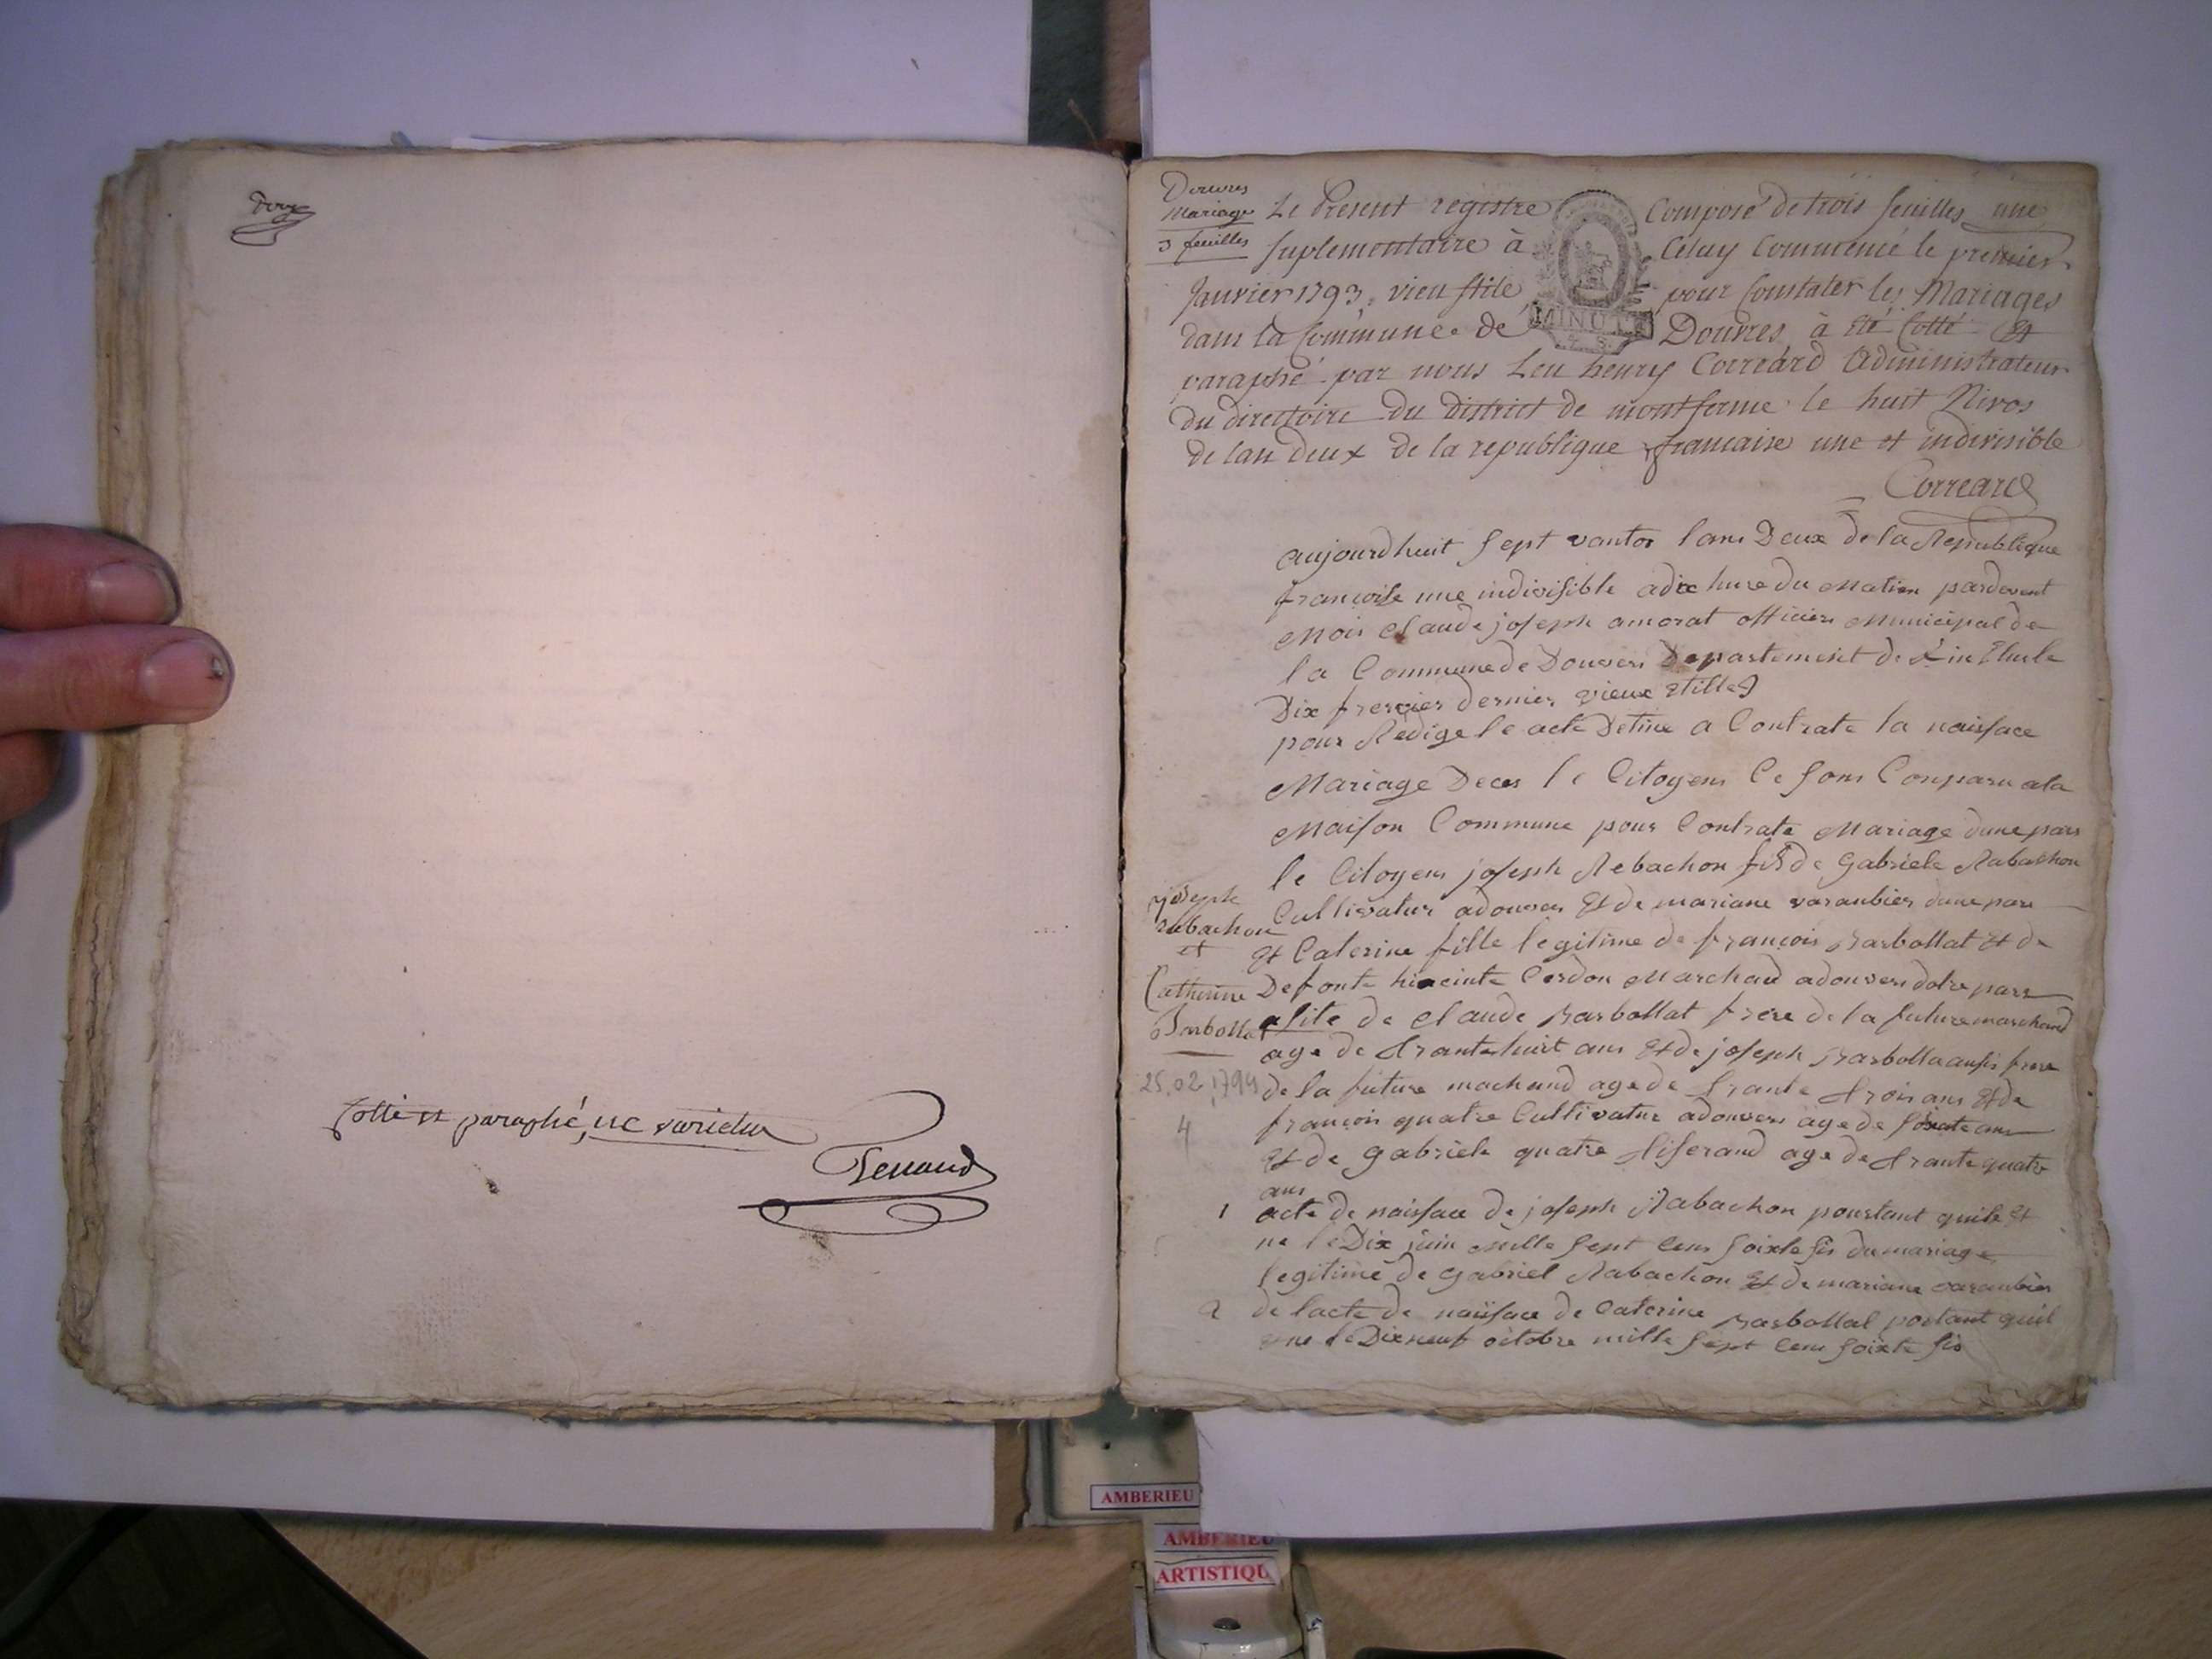 douze
Cotté et paraphé, ne varietur
Tenand
Douvres
Mariage
3 feuilles
Le Present registre Composé de trois feuilles une
suplementaire à Celuy Commencé le premier
Janvier 1793, vieu stile pour Constater les Mariages
dans la Commune de Douvres à été Cotté Et
MINUTE
paraphé par nous Leu henry Correard Administrateur
du directoire du district de montferme le huit Nivos
de lan deux de la republique francaise une et indivisible
Correard
aujourdhuit sept vantos lans Deux de la Republique
françoise une indivisible a dix hure du Matien pardevent
Moi Claude joseph amorat officiers Municipal de
la Commune de Douvers Departement de Lin Elu le
Dix frevier dernier vieux Stilles
pour Redige le acte Detine a Contrate la naissace
Mariage Deces le Citoyens Ce sons Conparu a la
Maison Commune pour Contrate Mariage dune pars
le Citoyens joseph Rebachon fils de Gabriele Rabachon
Cultivatur a douvers Et de mariane varanbier dune pars
joseph
rabachon
et
Catherine
Barbollat
Et Caterine fille legitime de françois Barbollat Et de
Defonte hiacinte Cordon Marchad a douvers dotre pars
asite de Claude Barbollat frere de la future marchand
age de trante huit ans Et de joseph Barbolla ausis frere
25.02.1794
de la future machand age de trante trois ans Et de
françois quatre Cultivatur a douvers age de soixate ans
4
Et de gabriele quatre tiserand age de trante quatre
ans
1 acte de naissace de joseph Rabachon pourtant quile Et
ne le Dix juin mille sept cens soixte sis du mariage
legitime de gabriel Rabachon Et de mariane varanbier
2 de lacte de naissace de Caterine Barbollat portant quil
ne le Dixneuf octobre mille sept cens soixte sis
AMBERIEU
AMBERIEU
ARTISTIQU